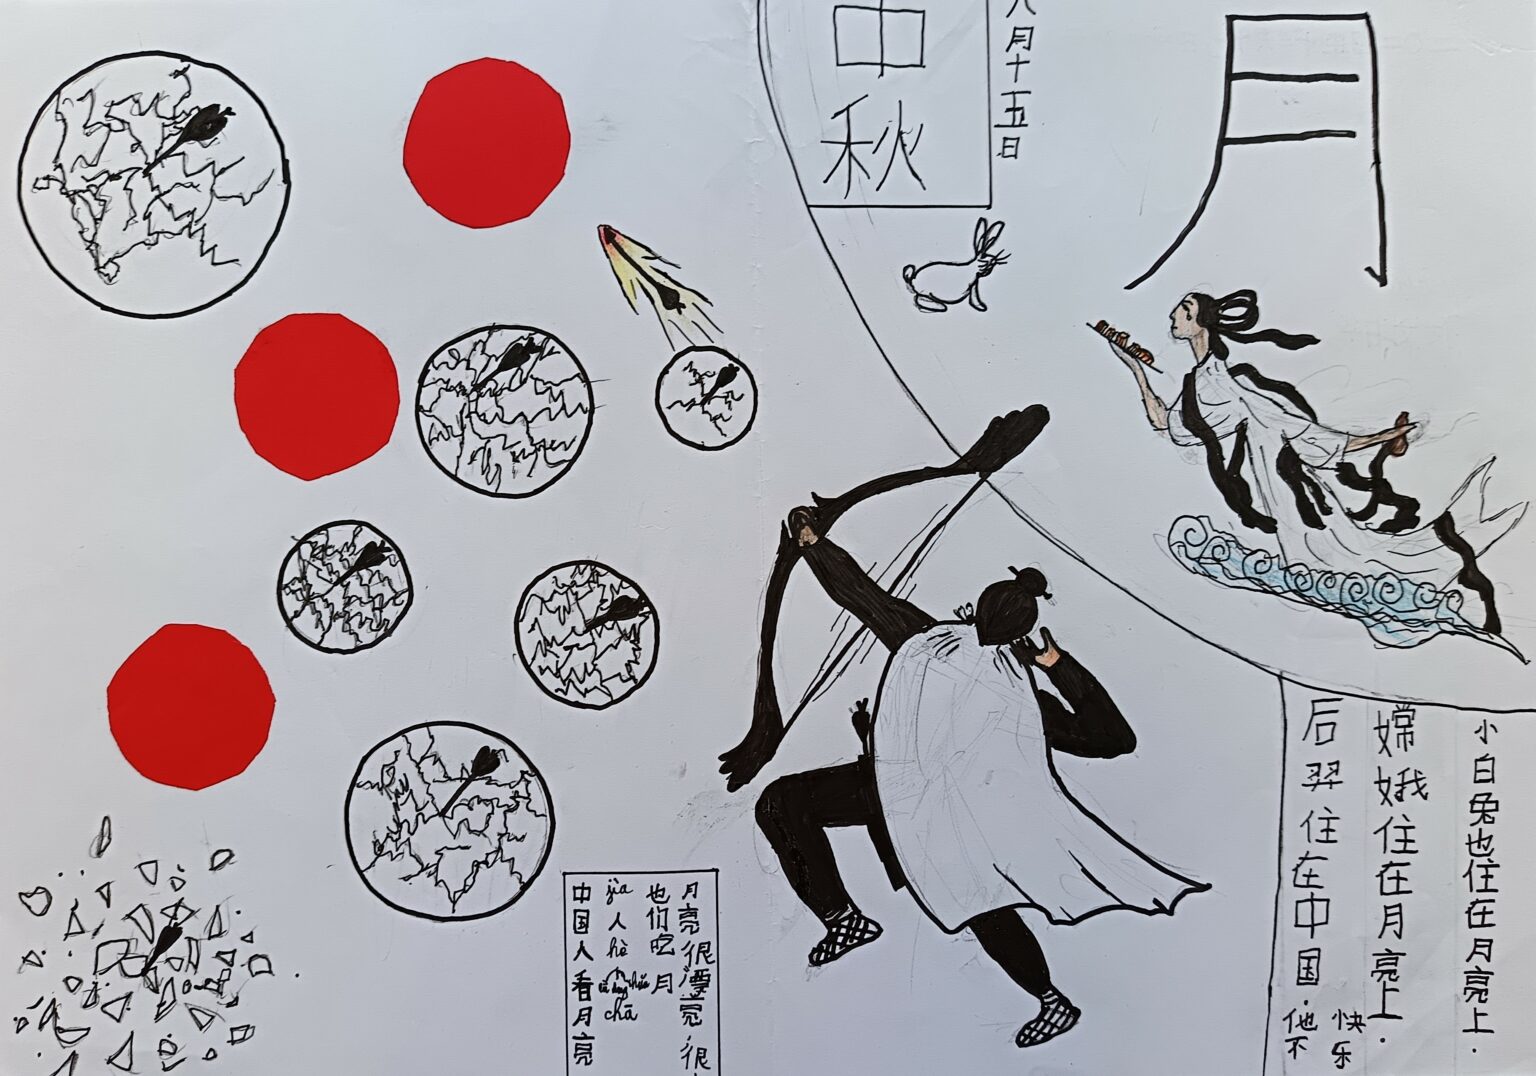 中
秋
月十五日
月
小白兔也住在月亮上.
嫦娥住在月亮上.
快乐
后羿住在中国.
他不
月亮很漂亮,很
也们吃月
jiā人hē
chá
中国人看月亮